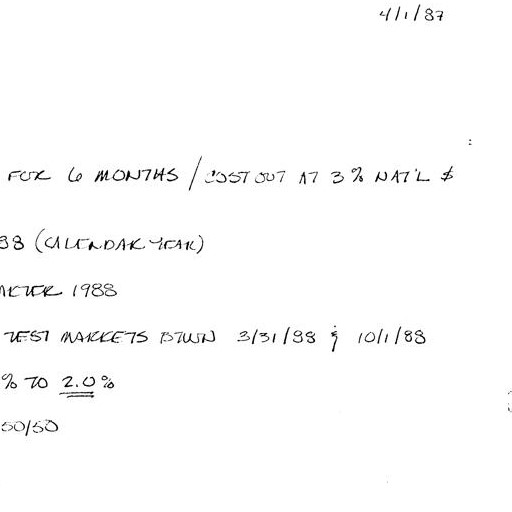 4/1/87
FOR 6 MONTHS / COST OUT AT 3% NAT'L $
88 (CALENDAR YEAR)
ARTER 1988
TEST MARKETS BTWN 3/31/88 & 10/1/88
% TO 2.0%
50/50